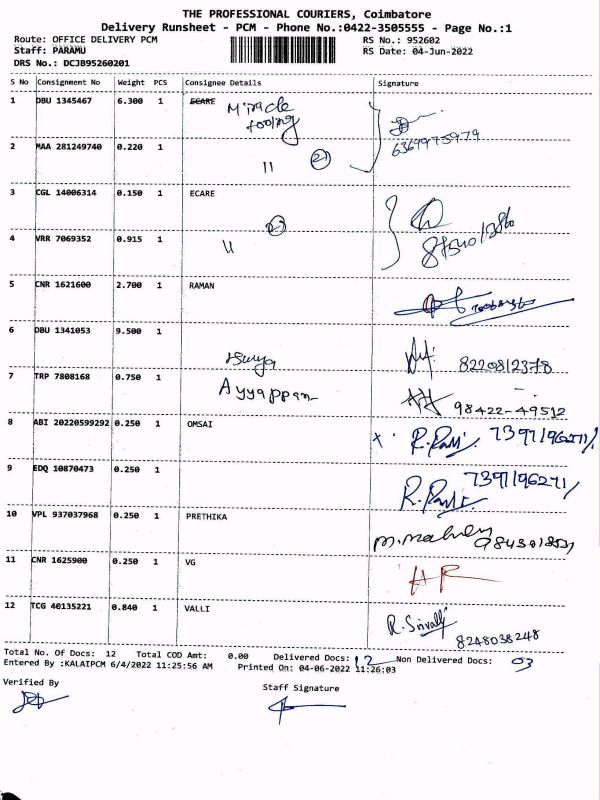 THE PROFESSIONAL COURIERS, Coimbatore
Delivery Runsheet - PCM - Phone No.:0422-3505555 - Page No.:1
Route: OFFICE DELIVERY PCM RS No.: 952602
Staff: PARAMU RS Date: 04-Jun-2022
DRS No.: DCJB95260201
S No Consignment No Weight PCS Consignee Details Signature
1 DBU 1345467 6.300 1 ECARE Miracle
tooling
6369975979
2 MAA 281249740 0.220 1
11 21
3 CGL 14006314 0.150 1 ECARE
4 VRR 7069352 0.915 1 11
5 CNR 1621600 2.700 1 RAMAN
6 DBU 1341053 9.500 1
Surya 8220812378
7 TRP 7808168 0.750 1 Ayyappan
98422-49512
8 ABI 20220599292 0.250 1 OMSAI x R.Ravi 7397196271
9 EDQ 10870473 0.250 1 7397196271
R.Ravi
10 VPL 937037968 0.250 1 PRETHIKA
11 CNR 1625900 0.250 1 VG
12 TCG 40135221 0.840 1 VALLI R. Srivalli
8248038248
Total No. Of Docs: 12 Total COD Amt: 0.00 Delivered Docs: 12 Non Delivered Docs: 03
Entered By :KALAIPCM 6/4/2022 11:25:56 AM Printed On: 04-06-2022 11:26:03
Verified By Staff Signature